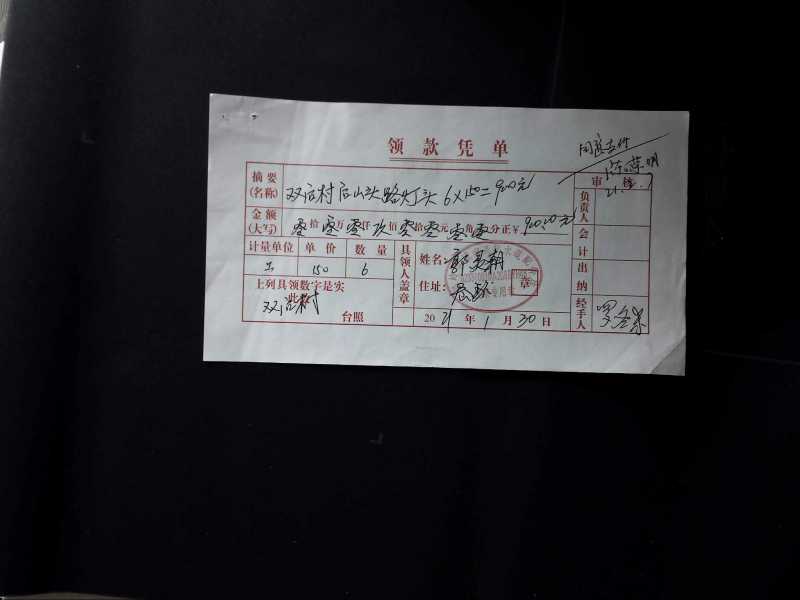 领款凭单
同意支付
摘要
(名称)
双后村后山头路灯头 6×150=900元
审核
金额
(大写)
零拾零万零仟玖佰零拾零元零角零分正¥: 900.00元
负责人
计量单位 单价 数量
150 6
具领人盖章
姓名:
住址:
章
会计
出纳
上列具领数字是实
此致
双后村
台照
2021年1月30日
经手人